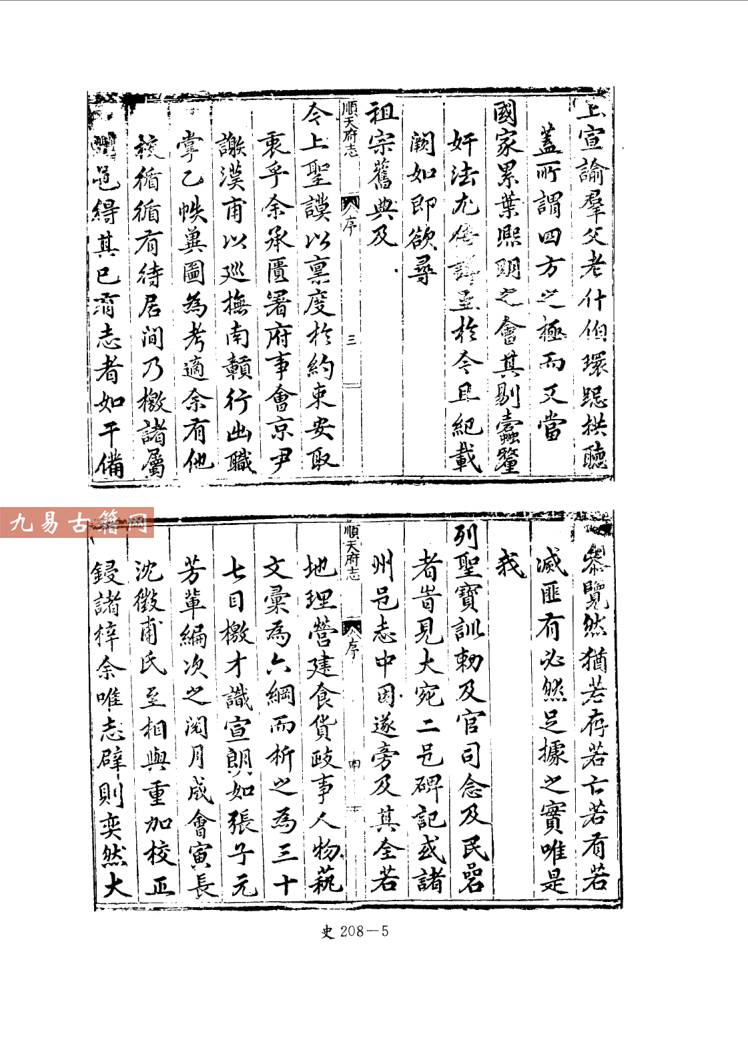 上宣諭羣父老什伯環跽拱聽
蓋所謂四方之極而又當
國家累葉熙明之會其剔蠹釐
奸法尤 至於今且紀載
闕如即欲尋
祖宗舊典及
順天府志 序 三
今上聖謨以稟度於約束安取
衷乎余承匱署府事會京尹
謝漢甫以廵撫南贛行出職
掌乙帙輿圖為考適余有他
循循有待居間乃檄諸屬
州邑得其已有志者如干備
叅覽然猶若存若亡若有若
滅匪有必然足據之實唯是
我
列聖寶訓勅及官司念及民碞
者嘗見大宛二邑碑記或諸
州邑志中因遂旁及其全若
順天府志 序
地理營建食貨政事人物蓺
文彙為六綱而析之為三十
七目檄才識宣朗如張子元
芳輩編次之閱月成會寅長
沈徵甫氏至相與重加校正
鋟諸梓余唯志辟則奕然大
九易古籍网
史 208—5